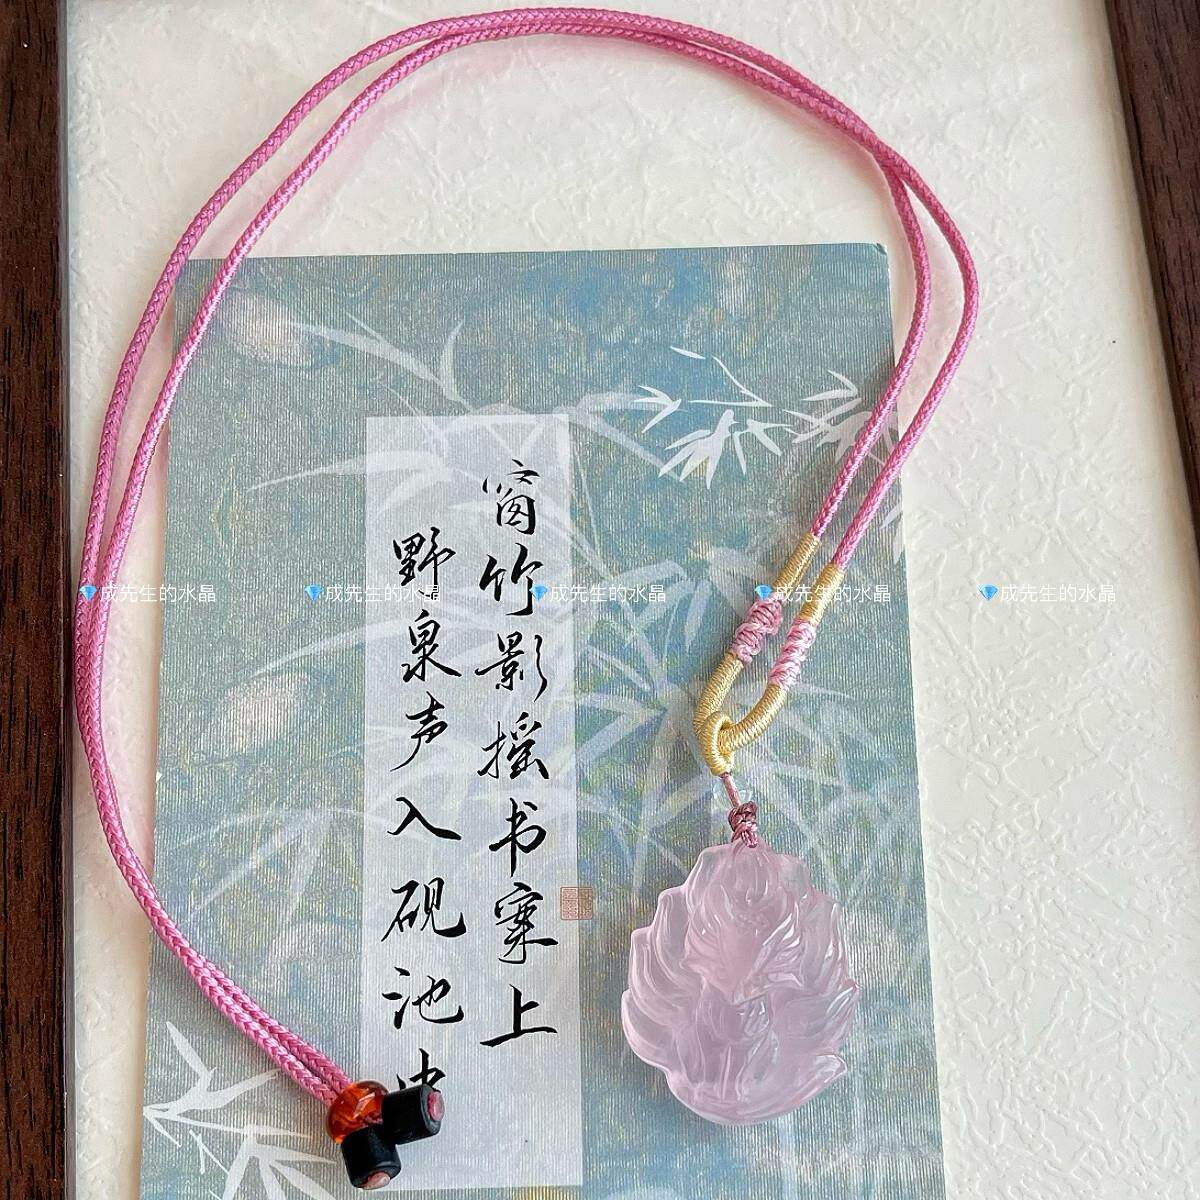 窗竹影摇书案上
野泉声入砚池中
💎成先生的水晶 💎成先生的水晶 💎成先生的水晶 💎成先生的水晶 💎成先生的水晶